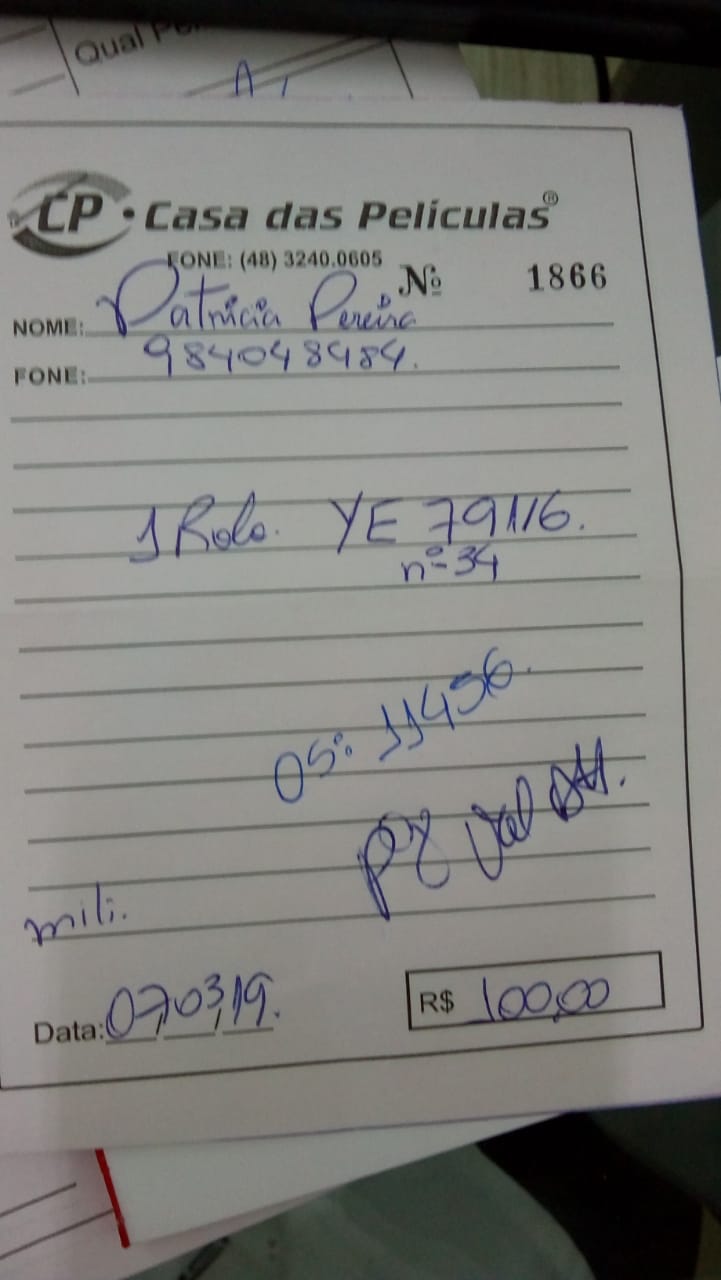 Qual Pe
CP • Casa das Películas®
FONE: (48) 3240.0605
Nº 1866
NOME: Patricia Pereira
FONE: 984048484.
1 Rolo. YE 79116.
nº 34
OS: 11456.
mili.
Data: 07,03,19.
R$ 100,00